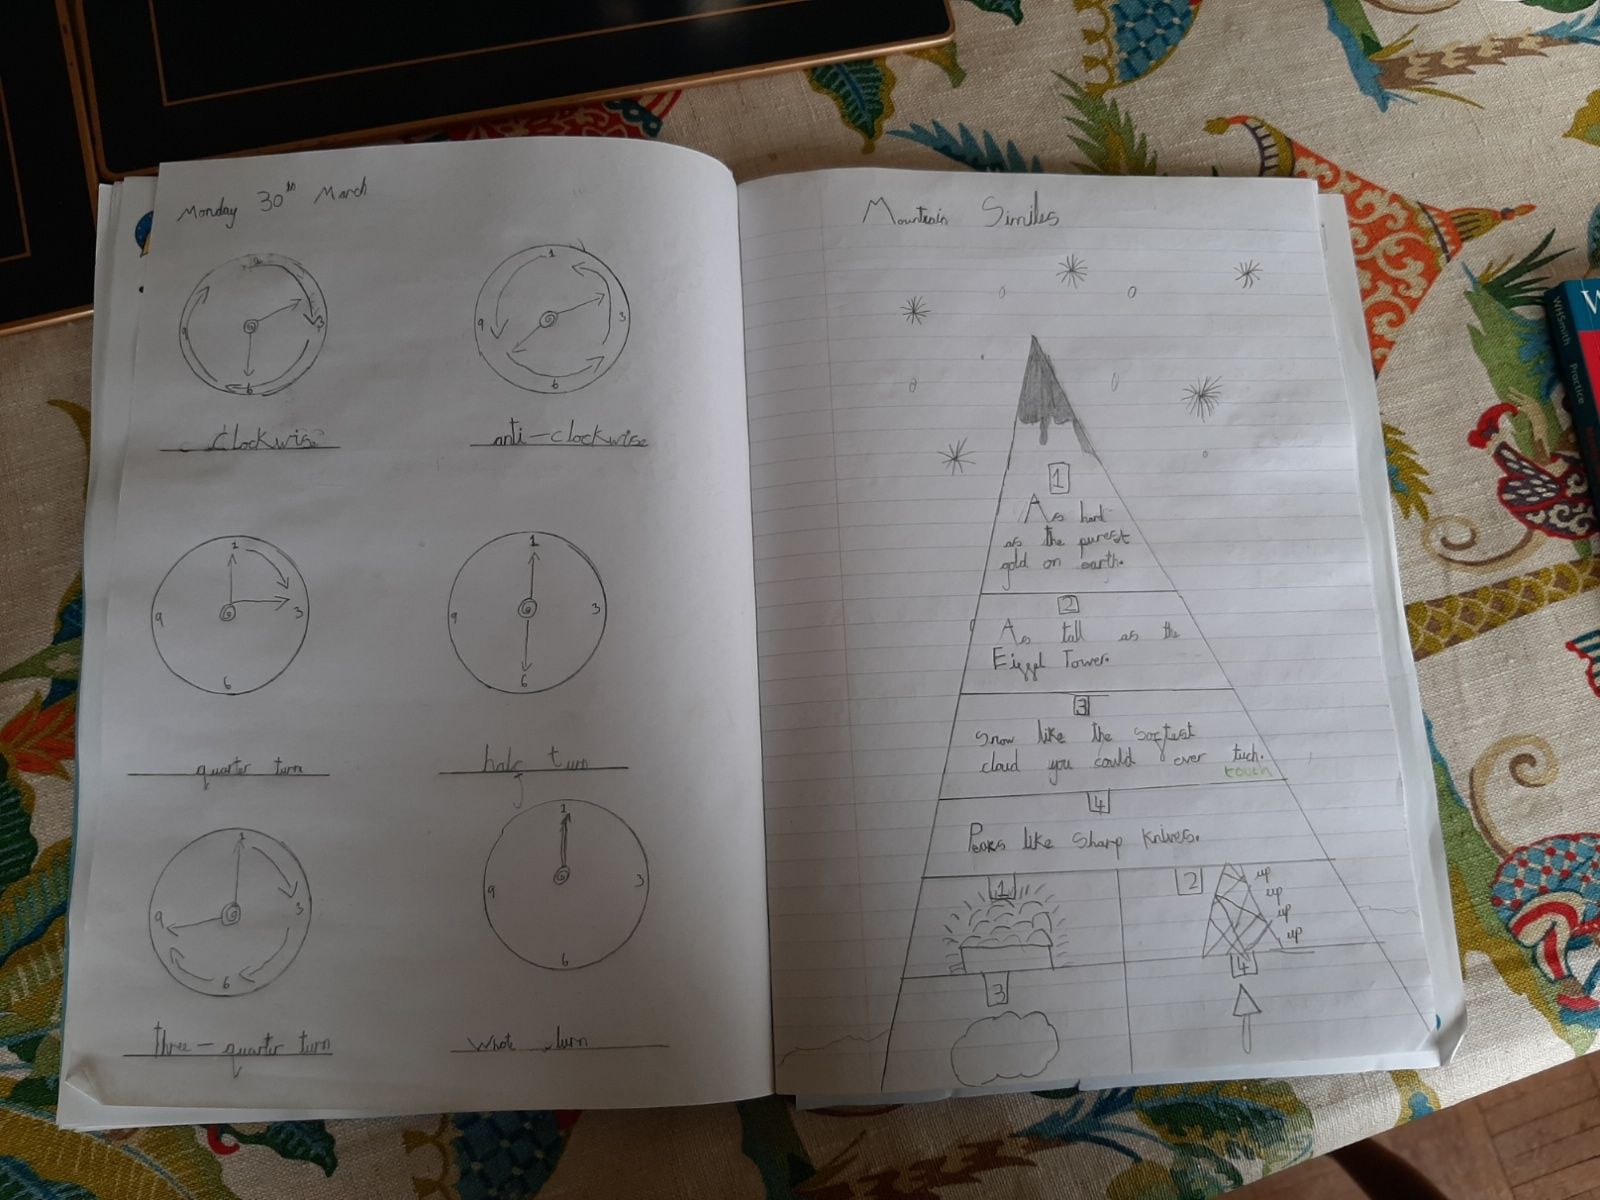 Monday 30th March
1
9 3
6
clockwise
1
9 3
6
anti-clockwise
1
9 3
6
quarter turn
1
9 3
6
half turn
1
9 3
6
three-quarter turn
1
9 3
6
whole turn
Mountain Similes
1
As hard
as the purest
gold on earth.
2
As tall as the
Eiffel Tower.
3
Snow like the softest
cloud you could ever tuch.
touch
4
Peaks like sharp knives.
1
2
up
up
up
up
3
4
WHSmith Practice